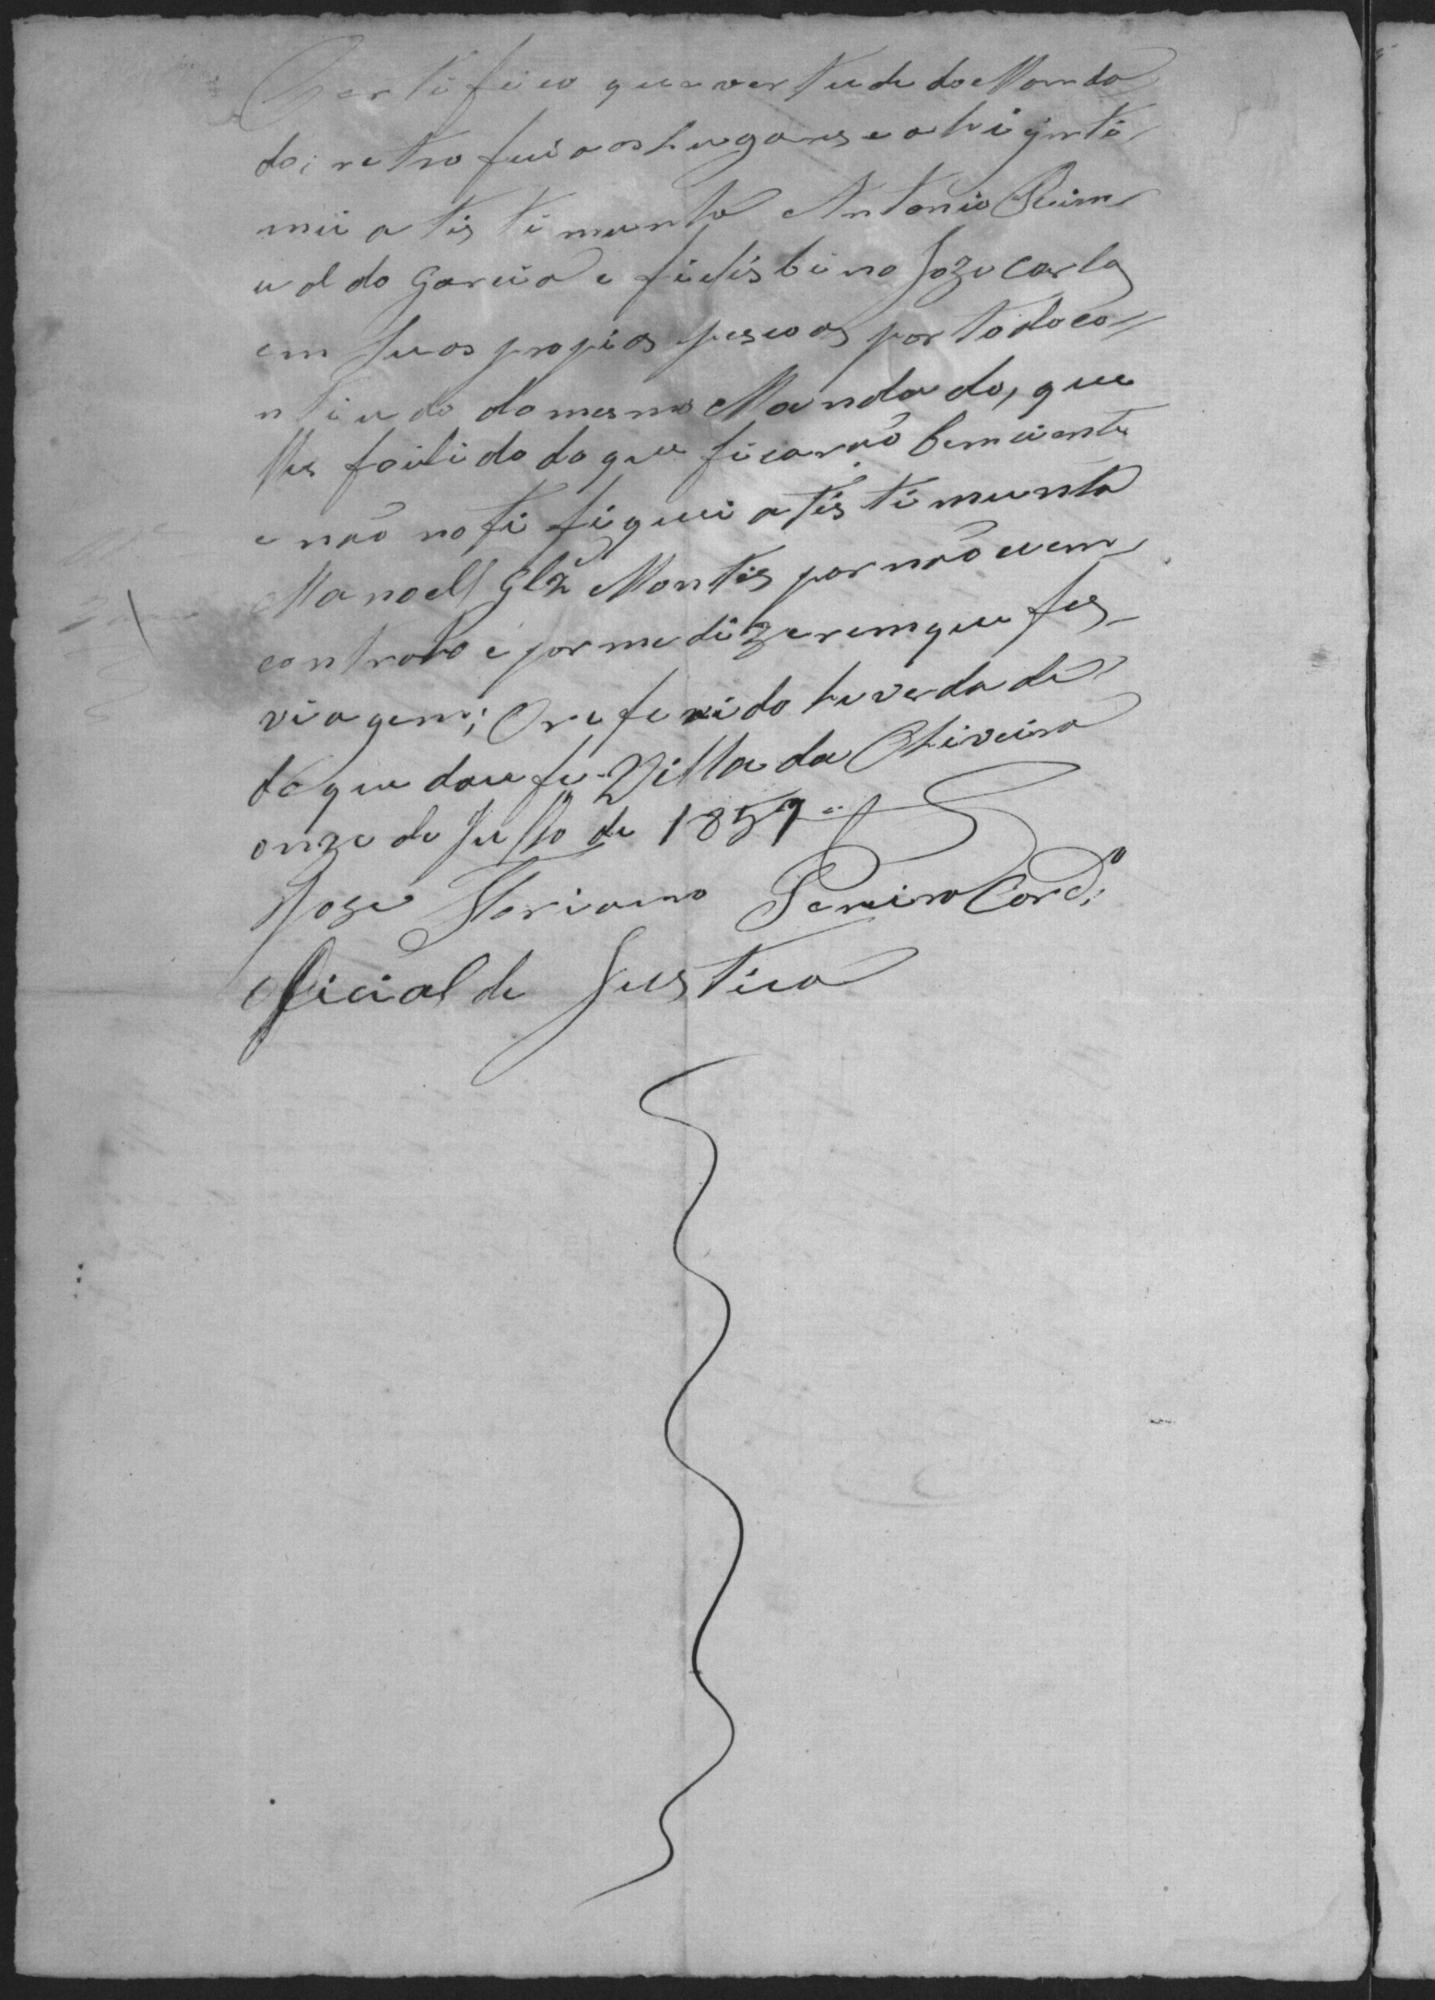 Certifico que vertude do Manda
do; retro fui aos lugares e ahi jnti
mei a tistimunha Antonio Reim
ualdo Garcia e fidisbino Joze Carlos
em suas propias pescoas por todo co
ntiudo do mesmo Mandado, que
lhes foi lido do que ficarão bem ciente
e não notifiquei a tistimunha
Manoel Glz Montes por não emem
contralo e por me dizerem que fes
viagem; O referido he verdade
do que dou fe. Villa da Oliveira
onze de Julho de 1857
Joze Floriano Pereira Cord.o
oficial de Justica